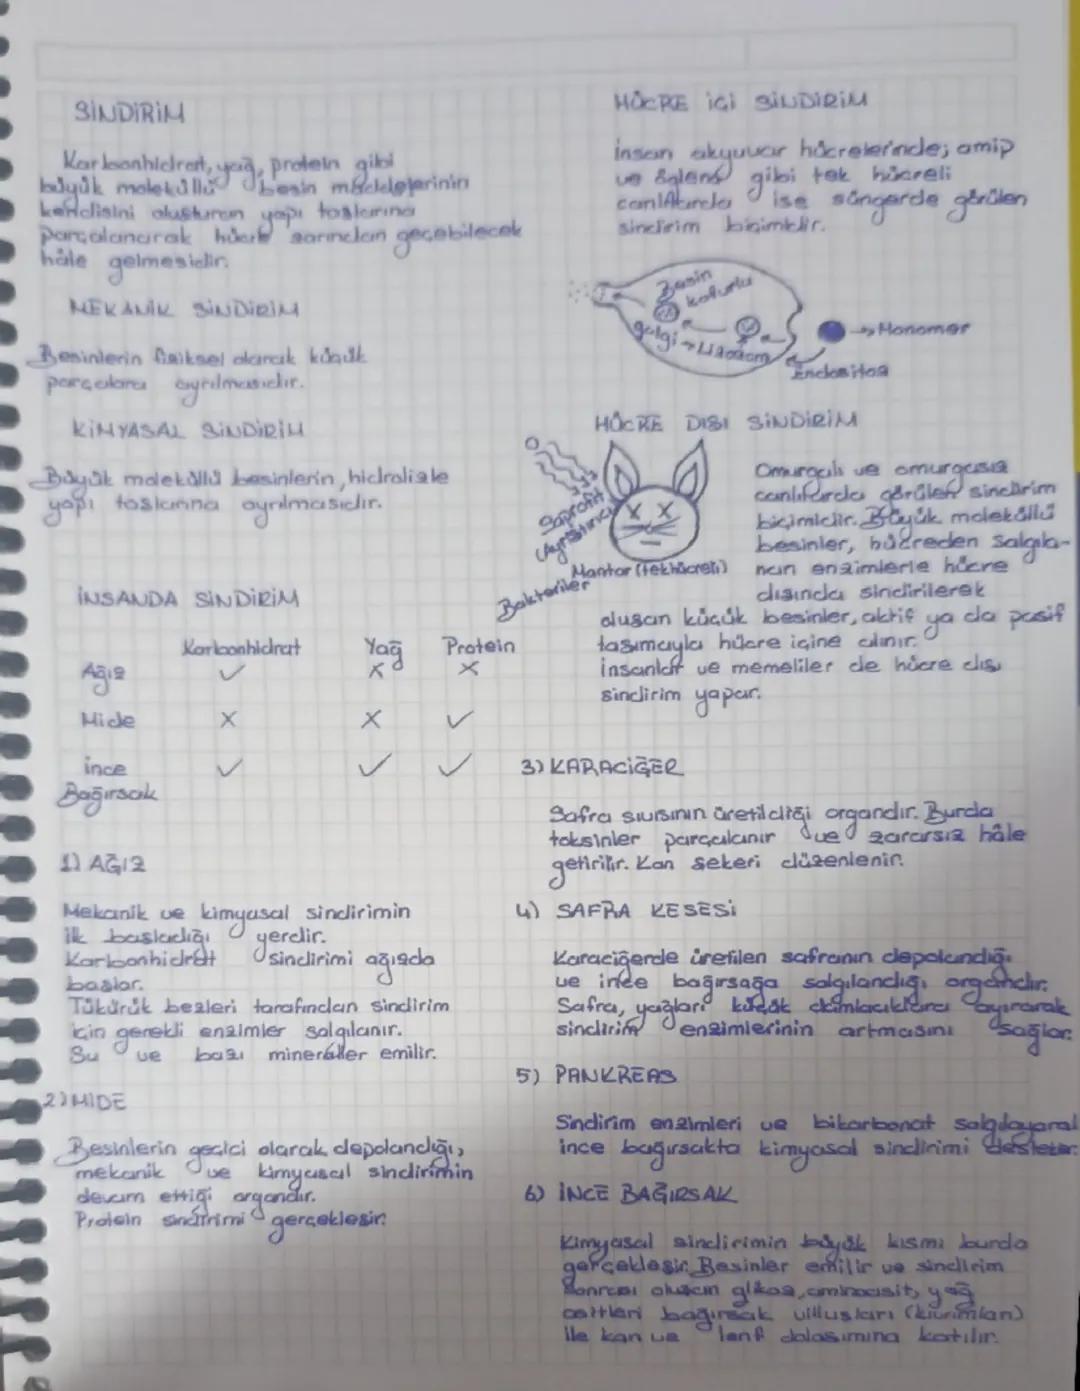 SİNDİRİM
Karbonhidrat, yağ, protein gibi
büyük moleküllü besin maddelerinin
kendisini oluşturan yapı taşlarına
parçalanarak hücre zarından geçebilecek
hâle gelmesidir.
MEKANİK SİNDİRİM
Besinlerin fiziksel olarak küçük
parçalara ayrılmasıdır.
KİMYASAL SİNDİRİM
Büyük moleküllü besinlerin, hidrolizle
yapı taşlarına ayrılmasıdır.
İNSANDA SİNDİRİM
Karbonhidrat Yağ Protein
Ağız ✓ X X
Mide X X ✓
İnce ✓ ✓ ✓
Bağırsak
1) AĞIZ
Mekanik ve kimyasal sindirimin
ilk başladığı yerdir.
Karbonhidrat sindirimi ağızda
başlar.
Tükürük bezleri tarafından sindirim
için gerekli enzimler salgılanır.
Su ve bazı mineraller emilir.
2) MİDE
Besinlerin geçici olarak depolandığı,
mekanik ve kimyasal sindirimin
devam ettiği organdır.
Protein sindirimi gerçekleşir.
HÜCRE İÇİ SİNDİRİM
İnsan akyuvar hücrelerinde; amip
ve öglena gibi tek hücreli
canlılarda ise süngerde görülen
sindirim biçimidir.
Besin
kofulu
golgi → Lizozom
→ Monomer
Endositoz
HÜCRE DIŞI SİNDİRİM
Saprofit
(Ayrıştırıcı)
Mantar (tek hücreli)
Bakteriler
Omurgalı ve omurgasız
canlılarda görülen sindirim
biçimidir. Büyük moleküllü
besinler, hücreden salgıla-
nan enzimlerle hücre
dışında sindirilerek
oluşan küçük besinler, aktif ya da pasif
taşımayla hücre içine alınır.
İnsanlar ve memeliler de hücre dışı
sindirim yapar.
3) KARACİĞER
Safra sıvısının üretildiği organdır. Burda
toksinler parçalanır ve zararsız hâle
getirilir. Kan şekeri düzenlenir.
4) SAFRA KESESİ
Karaciğerde üretilen safranın depolandığı
ve ince bağırsağa salgılandığı organdır.
Safra, yağları küçük damlacıklara ayırarak
sindirim enzimlerinin artmasını sağlar.
5) PANKREAS
Sindirim enzimleri ve bikarbonat salgılayarak
ince bağırsakta kimyasal sindirimi destekler.
6) İNCE BAĞIRSAK
Kimyasal sindirimin büyük kısmı burda
gerçekleşir. Besinler emilir ve sindirim
sonrası oluşan glikoz, aminoasit, yağ
asitleri bağırsak villusları (kıvrımları)
ile kan ve lenf dolaşımına katılır.